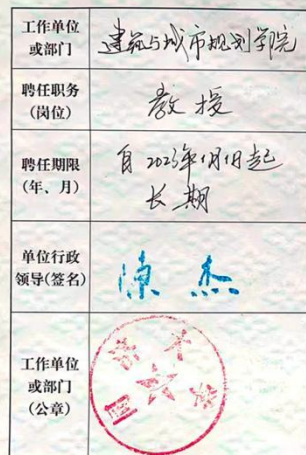 工作单位
或部门
建筑与城市规划学院
聘任职务
(岗位)
教授
聘任期限
(年、月)
自2023年1月1日起
长期
单位行政
领导(签名)
陈杰
工作单位
或部门
(公章)
同济大学